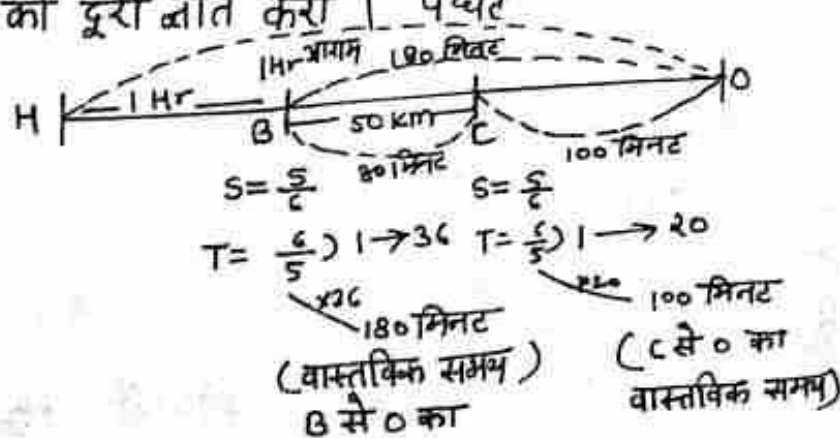 का दूरी ज्ञात करो |
1Hr आराम 180 मिनट
H 1 Hr B 50 Km C O
80 मिनट 100 मिनट
S= 5/6 S= 5/6
T= 6/5 ) 1→36 T= 6/5 ) 1→20
×36 ×20
180 मिनट 100 मिनट
(वास्तविक समय) (C से O का
B से O का वास्तविक समय)